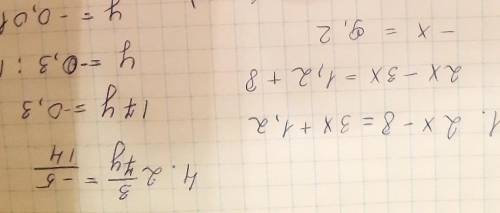 1. 2x - 8 = 3x + 1,2
2x - 3x = 1,2 + 8
- x = 9,2
4. 2 3/7y = -5/14
17y = -0,3
y = -0,3 : 1
y = -0,01